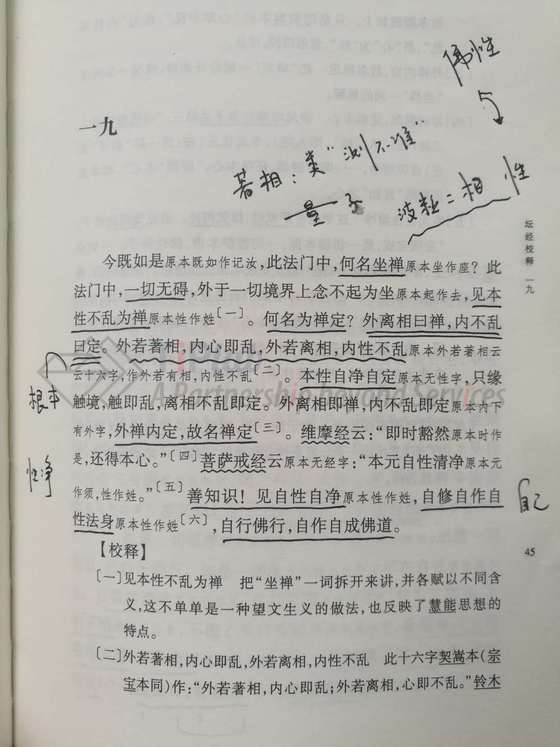 佛性
一九
著相：类“测不准”
量子
波粒二相 性
坛经校释 一九
今既如是原本既如作记汝，此法门中，何名坐禅原本坐作座？此
法门中，一切无碍，外于一切境界上念不起为坐原本起作去，见本
性不乱为禅原本性作姓〔一〕。何名为禅定？外离相曰禅，内不乱
曰定。外若著相，内心即乱，外若离相，内性不乱原本外若著相云
云十六字，作外若有相，内性不乱〔二〕。本性自净自定原本无性字，只缘
触境，触即乱，离相不乱即定。外离相即禅，内不乱即定原本内下
有外字，外禅内定，故名禅定〔三〕。维摩经云：“即时豁然原本时作
是，还得本心。”〔四〕菩萨戒经云原本无经字：“本元自性清净原本元
作须，性作姓。”〔五〕善知识！见自性自净原本性作姓，自修自作自
性法身原本性作姓〔六〕，自行佛行，自作自成佛道。
根本
性净
自己
【校释】
45
〔一〕见本性不乱为禅　把“坐禅”一词拆开来讲，并各赋以不同含
义，这不单单是一种望文生义的做法，也反映了慧能思想的
特点。
〔二〕外若著相，内心即乱，外若离相，内性不乱　此十六字契嵩本（宗
宝本同）作：“外若著相，内心即乱；外若离相，心即不乱。”铃木